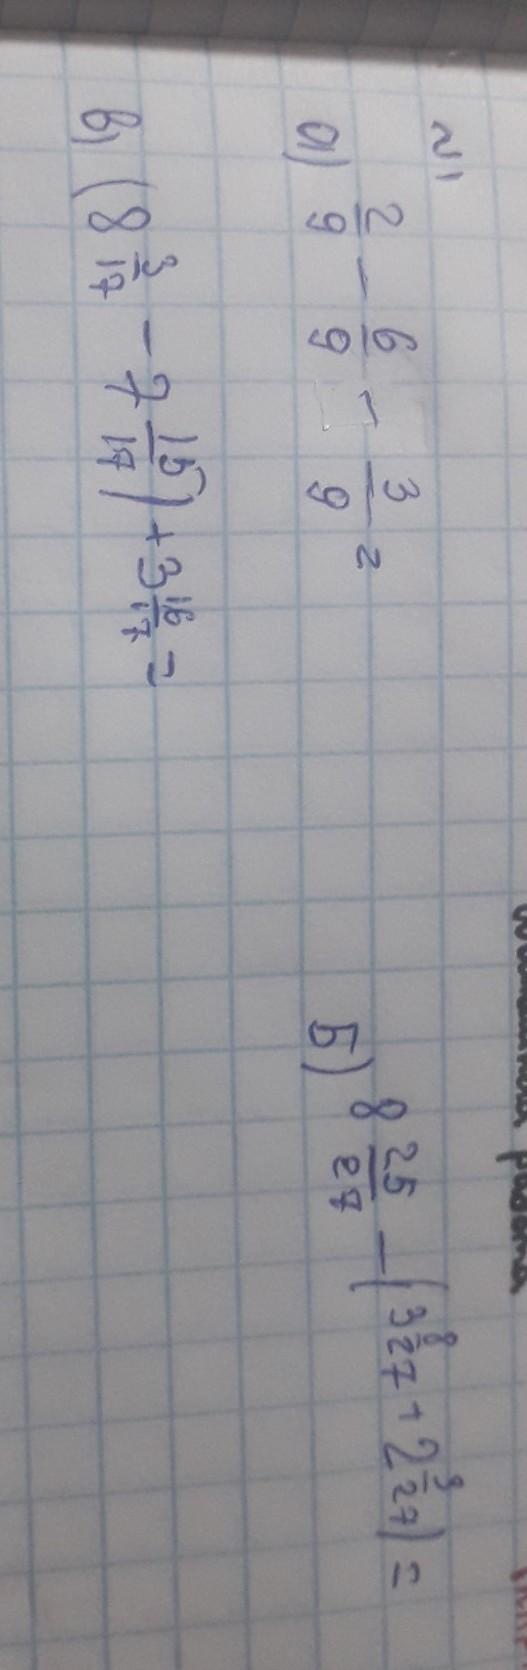 №1
а) 2/9 - 6/9 - 3/9 =
Б) 8 25/27 - (3 8/27 + 2 9/27) =
в) (8 3/17 - 7 15/17) + 3 16/17 =